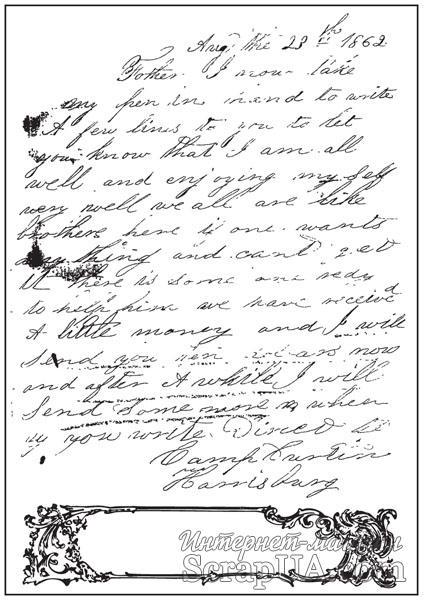 Aug the 23th 1862
Father I now take
my pen in hand to write
A few lines to you to let
you know that I am all
well and enjoying my self
very well we all are like
brothers here is one wants
any thing and cant get
it there is some one redy
to help him we have received
A little money and I will
send you ten now
and after A while I will
Send Some more
if you write Direct to
Camp Curtin
Harrisburg
Интернет-магазин
ScrapUA.com